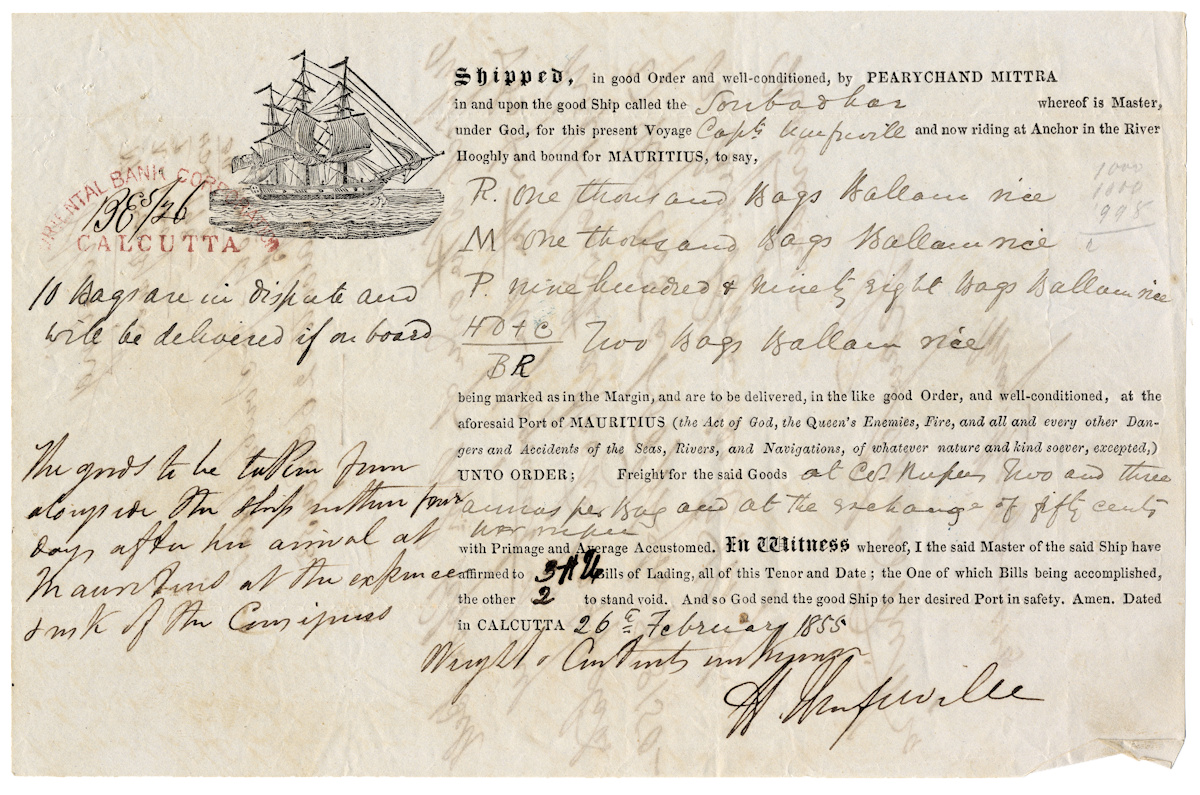 Shipped, in good Order and well-conditioned, by PEARYCHAND MITTRA
in and upon the good Ship called the Soubadhar whereof is Master,
under God, for this present Voyage Capt. and now riding at Anchor in the River
Hooghly and bound for MAURITIUS, to say,
R. One thousand Bags Ballam rice
M One thousand Bags Ballam rice
P. nine hundred & ninety eight Bags Ballam rice
HD+C Two Bags Ballam rice
BR
1000
1000
998
ORIENTAL BANK CORPORATION
CALCUTTA
10 Bags are in dispute and
will be delivered if on board
being marked as in the Margin, and are to be delivered, in the like good Order, and well-conditioned, at the
aforesaid Port of MAURITIUS (the Act of God, the Queen's Enemies, Fire, and all and every other Dan-
gers and Accidents of the Seas, Rivers, and Navigations, of whatever nature and kind soever, excepted,)
UNTO ORDER; Freight for the said Goods at Cos. Rupees Two and three
annas per Bag and at the exchange of fifty cents
per rupee
with Primage and Average Accustomed. In Witness whereof, I the said Master of the said Ship have
affirmed to Bills of Lading, all of this Tenor and Date; the One of which Bills being accomplished,
the other 2 to stand void. And so God send the good Ship to her desired Port in safety. Amen. Dated
in CALCUTTA 26th February 1855
The goods to be taken from
alongside the ship within four
days after her arrival at
Mauritius at the expence
& risk of the Consignees
Weight & Contents unknown